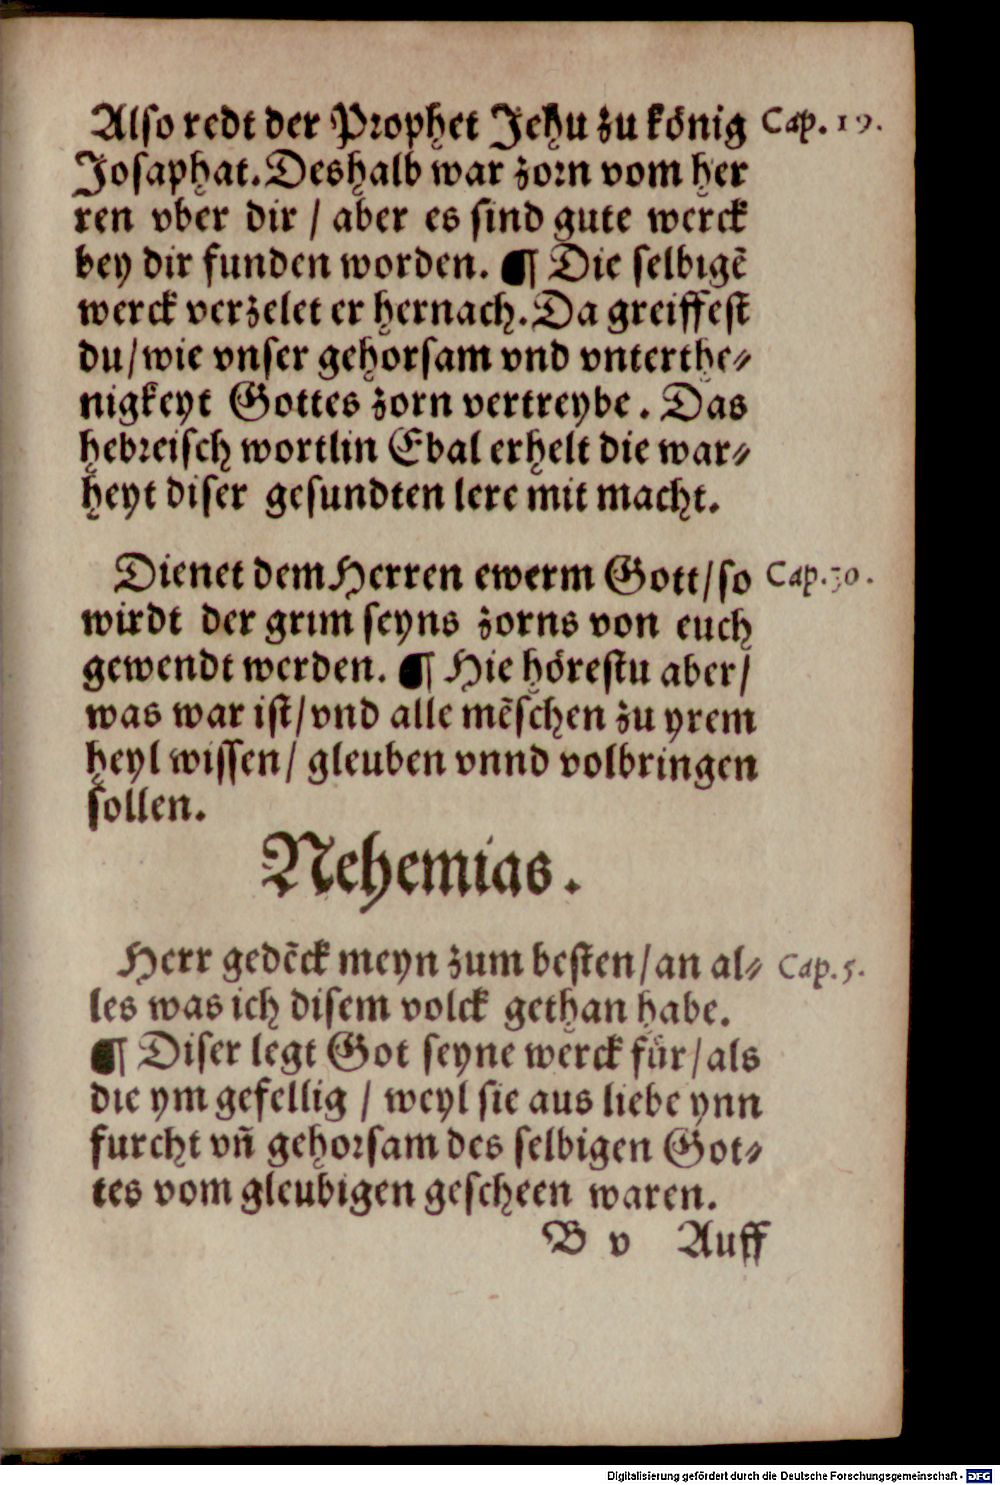 Also redt der Prophet Jehu zu könig Cap. 19.
Josaphat. Deshalb war zorn vom her
ren vber dir / aber es sind gute werck
bey dir funden worden. ¶ Die selbigē
werck verzelet er hernach. Da greiffest
du / wie vnser gehorsam vnd vnterthe⸗
nigkeyt Gottes zorn vertreybe. Das
hebreisch wortlin Ebal erhelt die war⸗
heyt diser gesundten lere mit macht.
Dienet dem Herren ewerm Gott / so Cap. 30.
wirdt der grim seyns zorns von euch
gewendt werden. ¶ Hie hörestu aber /
was war ist / vnd alle mēschen zu yrem
heyl wissen / gleuben vnnd volbringen
sollen.
Nehemias.
Herr gedēck meyn zum besten / an al⸗ Cap. 5.
les was ich disem volck gethan habe.
¶ Diser legt Got seyne werck für / als
die ym gefellig / weyl sie aus liebe ynn
furcht vñ gehorsam des selbigen Got⸗
tes vom gleubigen gescheen waren.
B v Auff
Digitalisierung gefördert durch die Deutsche Forschungsgemeinschaft - DFG